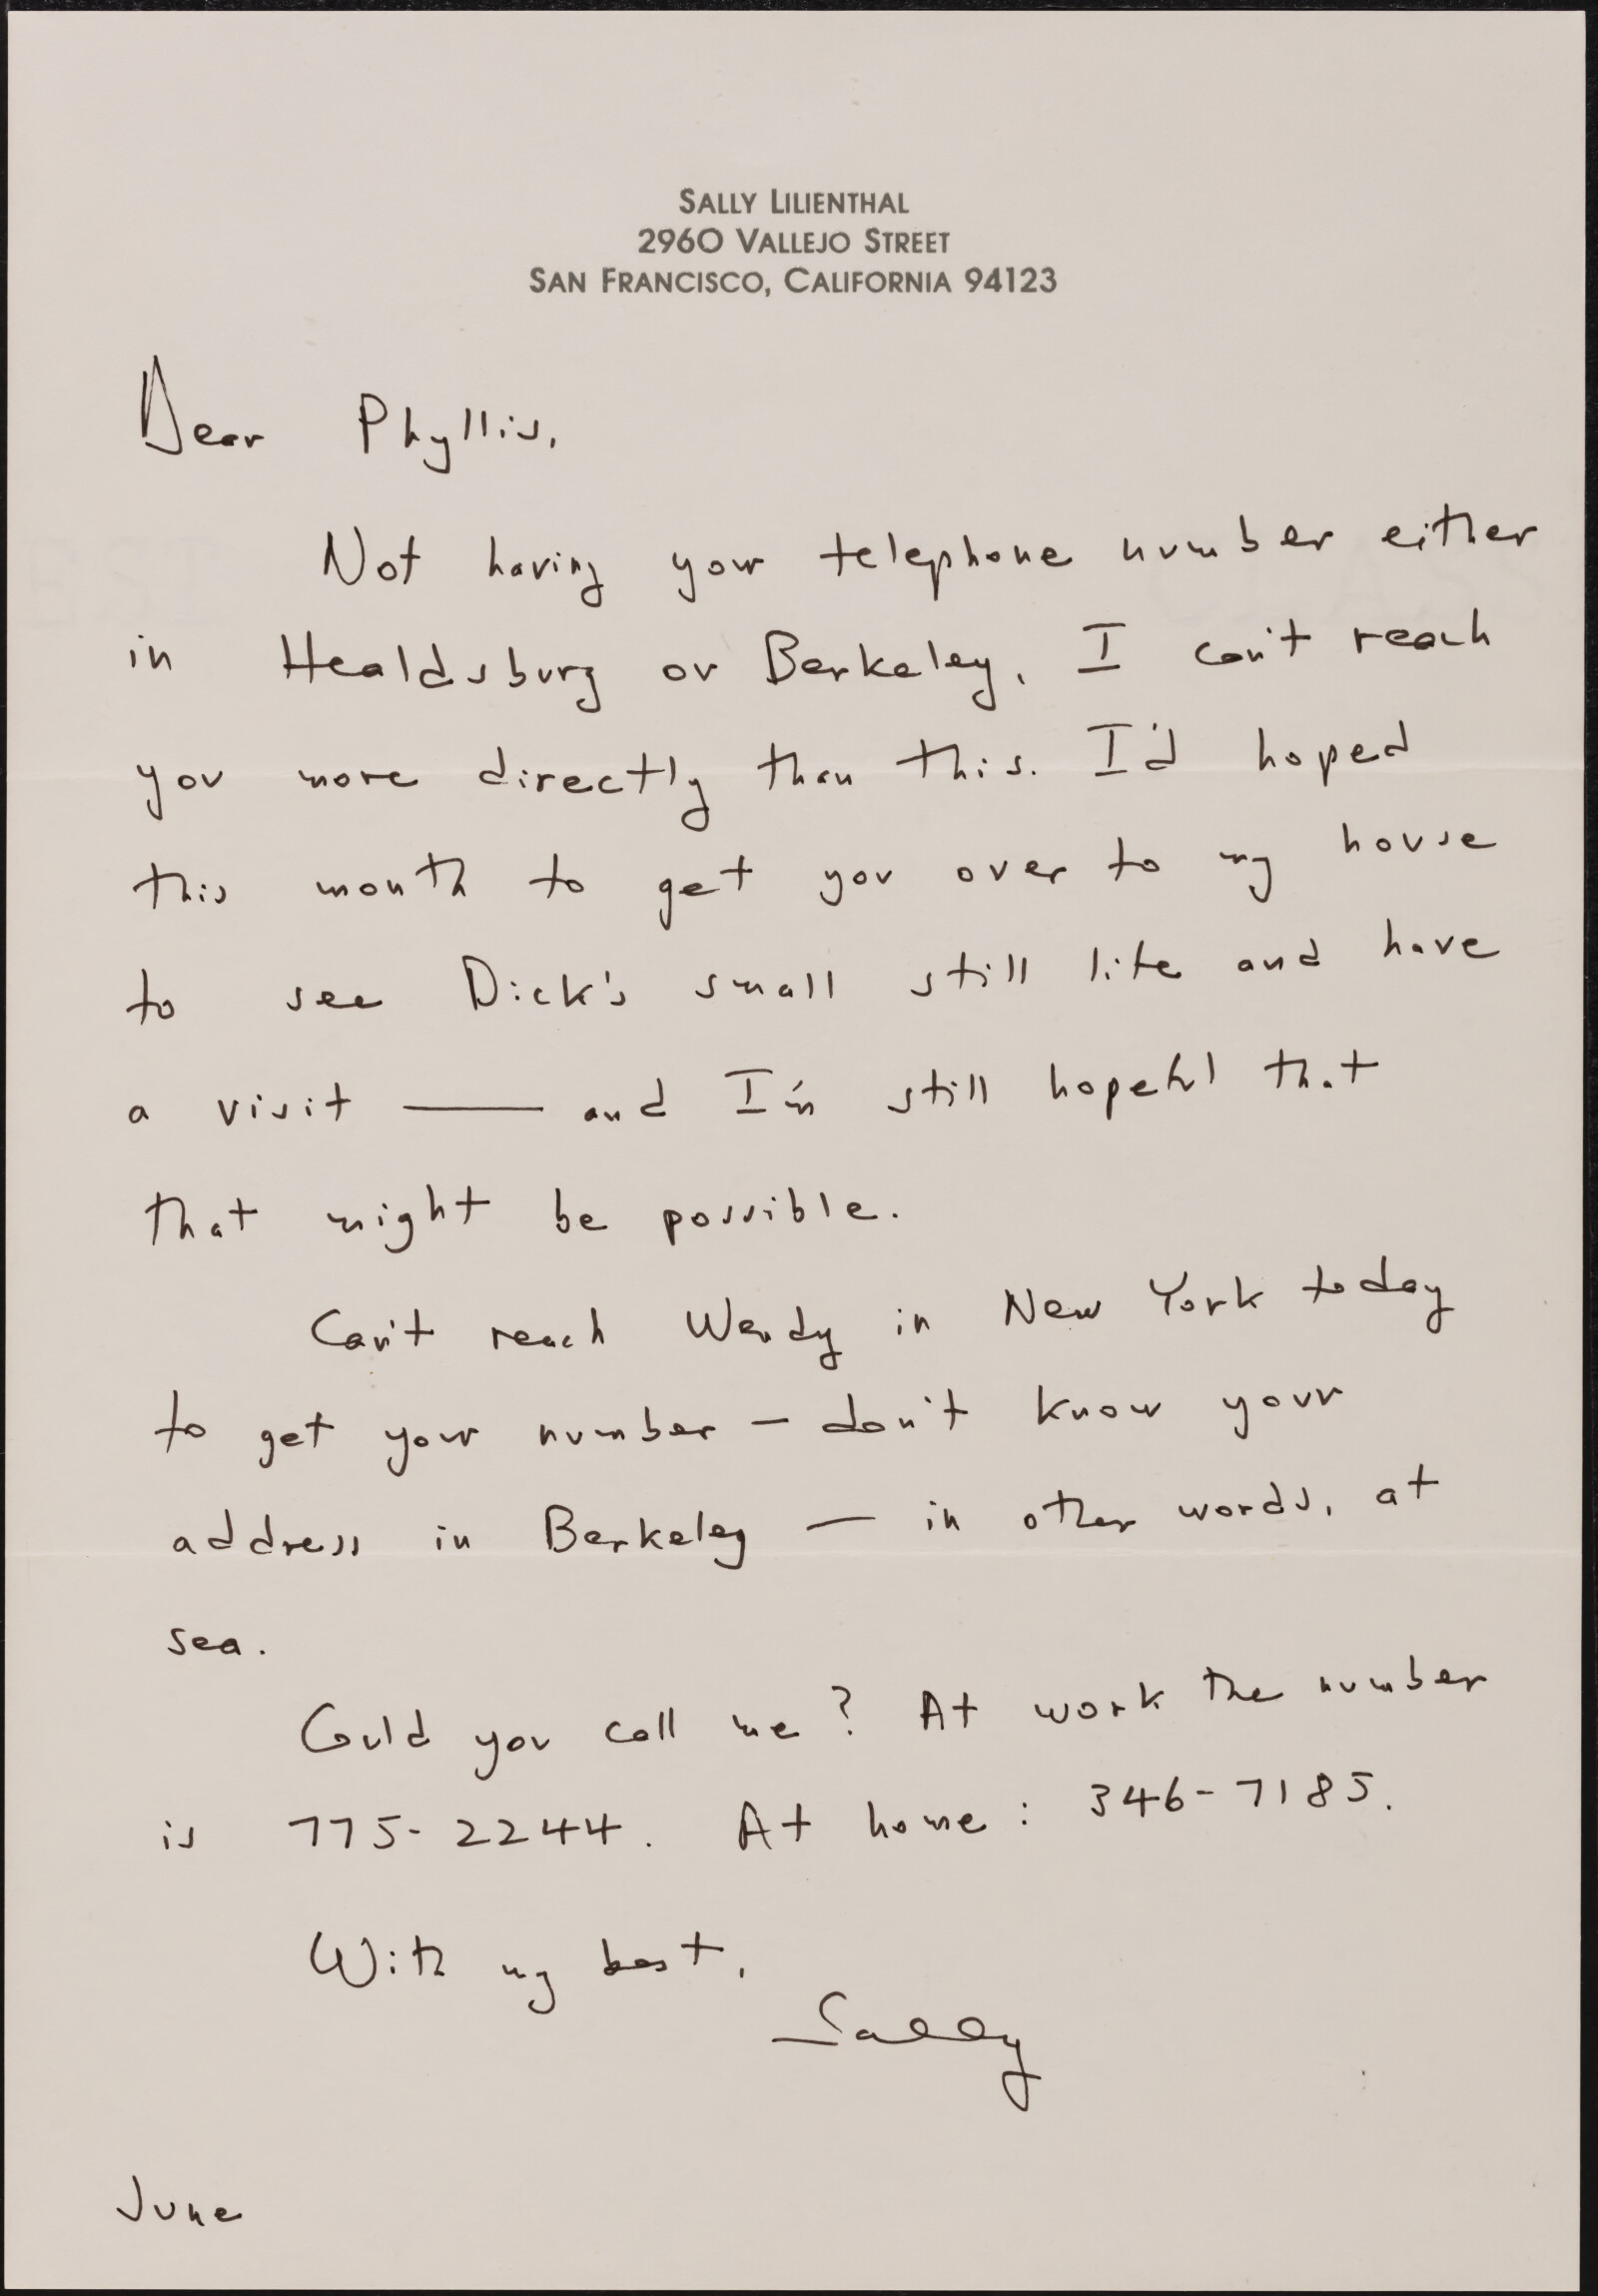 SALLY LILIENTHAL
2960 VALLEJO STREET
SAN FRANCISCO, CALIFORNIA 94123
Dear Phyllis,
Not having your telephone number either
in Healdsburg or Berkeley, I can't reach
you more directly than this. I'd hoped
this month to get you over to my house
to see Dick's small still life and have
a visit — and I'm still hopeful that
that might be possible.
Can't reach Wendy in New York today
to get your number – don't know your
address in Berkeley — in other words, at
sea.
Could you call me? At work the number
is 775-2244. At home: 346-7185.
With my best,
Sally
June